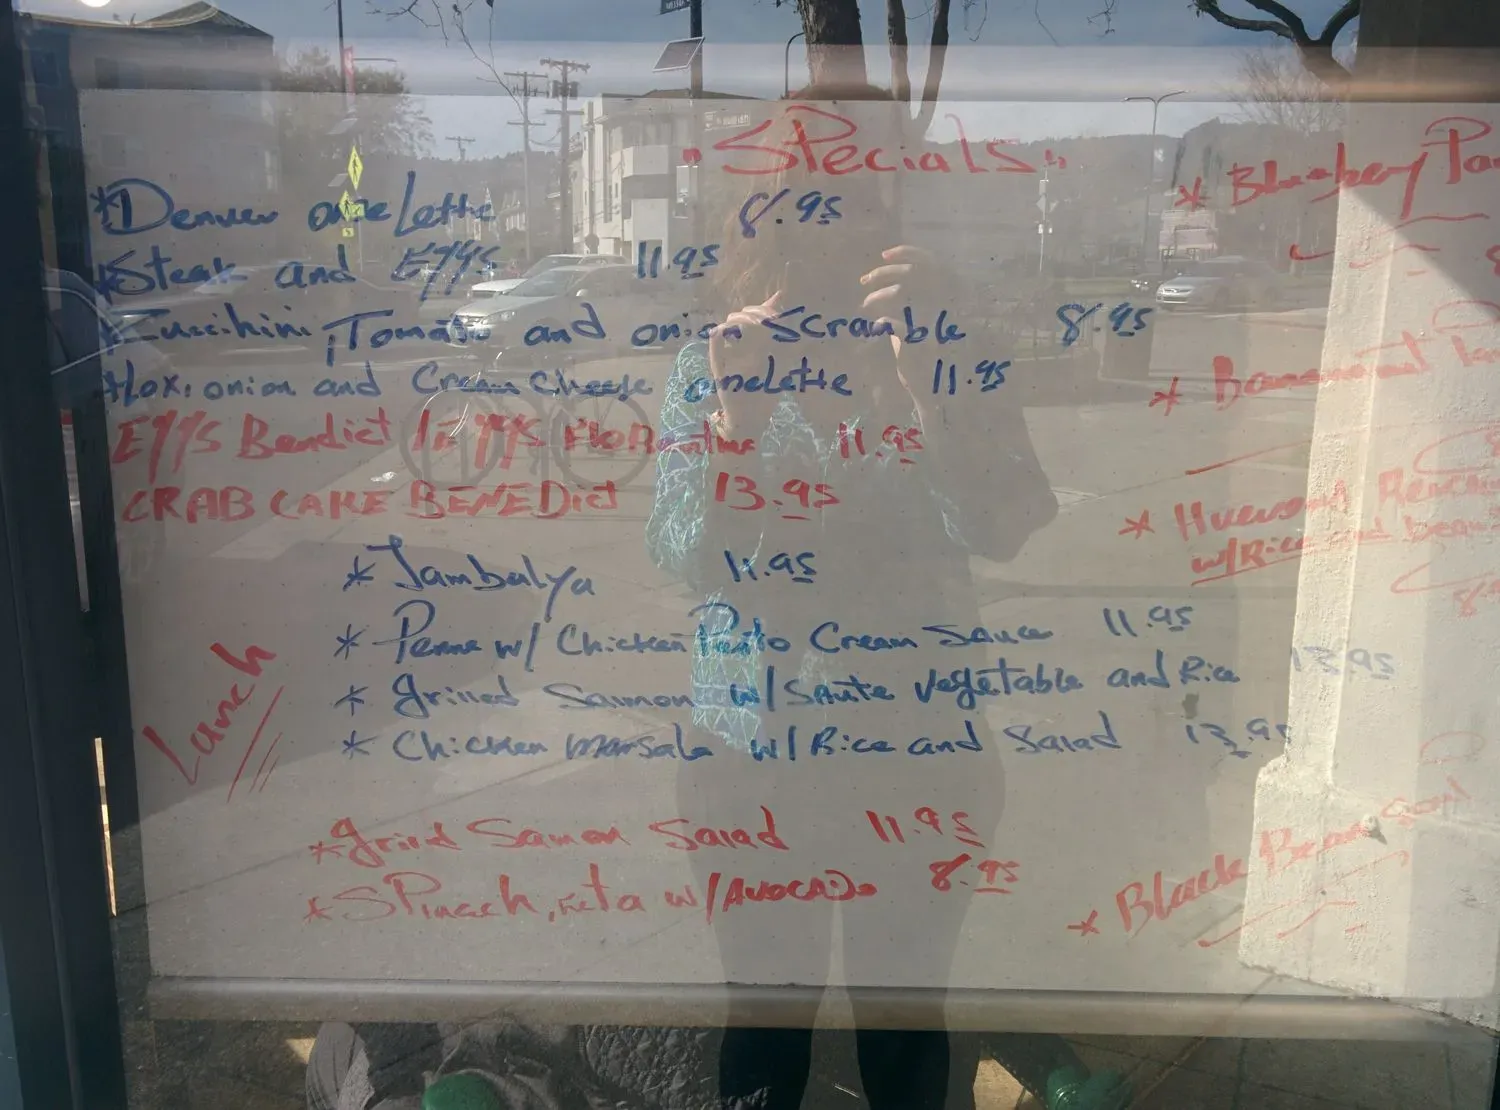 "Specials"
*Denver omelette 8.95
*Steak and Eggs 11.95
*Zucchini, Tomato and onion Scramble 8.95
*Lox, onion and Cream Cheese omelette 11.95
Eggs Bendict / Eggs Florentine 11.95
CRAB CAKE BENEDict 13.95
Lunch
* Jambalya 11.95
* Penne w/ Chicken Pesto Cream Sauce 11.95
* Grilled Salmon w/ Saute vegetable and Rice 13.95
* Chicken Marsala w/ Rice and Salad 13.95
* Grild Salmon Salad 11.95
* Spinach, Feta w/ AVOCADO 8.95
* Blueberry Pa
* Banana nut
* Huevos
w/ Rice and bean
* Black Bean Soup